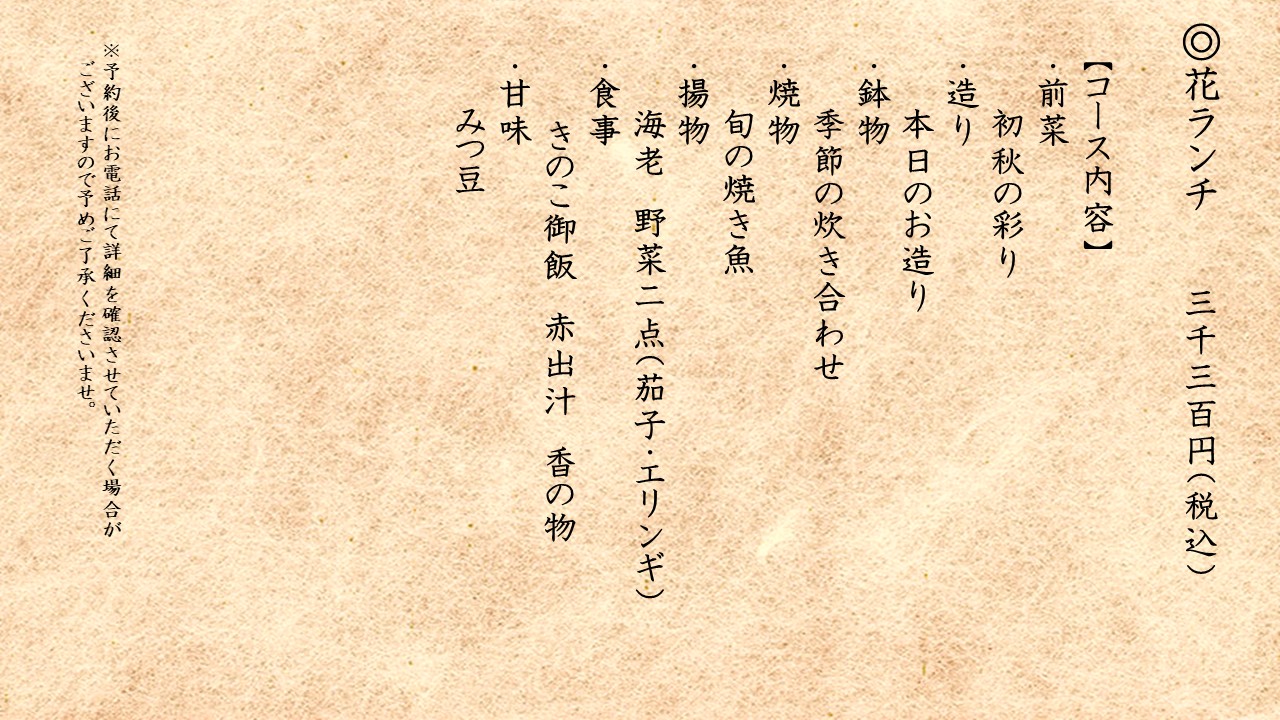 ◎花ランチ　　三千三百円(税込)
【コース内容】
・前菜
初秋の彩り
・造り
本日のお造り
・鉢物
季節の炊き合わせ
・焼物
旬の焼き魚
・揚物
海老　野菜二点(茄子・エリンギ)
・食事
きのこ御飯　赤出汁　香の物
・甘味
みつ豆
※予約後にお電話にて詳細を確認させていただく場合が
ございますので予めご了承くださいませ。